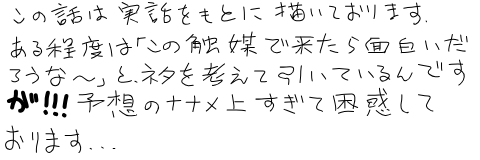 この話は実話をもとに描いております。
ある程度は「この触媒で来たら面白いだ
ろうな〜」と、ネタを考えて引いているんです
が!!!予想のナナメ上すぎて困惑して
おります...